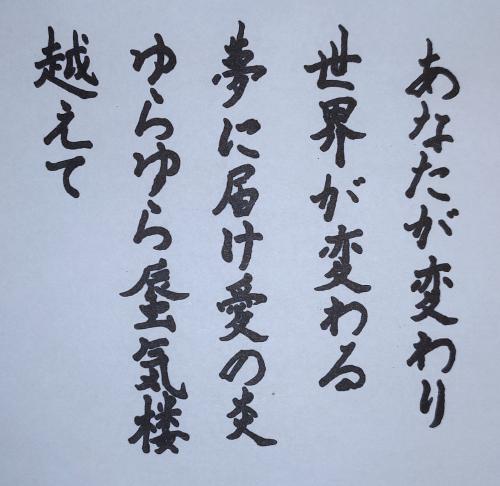 あなたが変わり
世界が変わる
夢に届け愛の炎
ゆらゆら蜃気楼
越えて